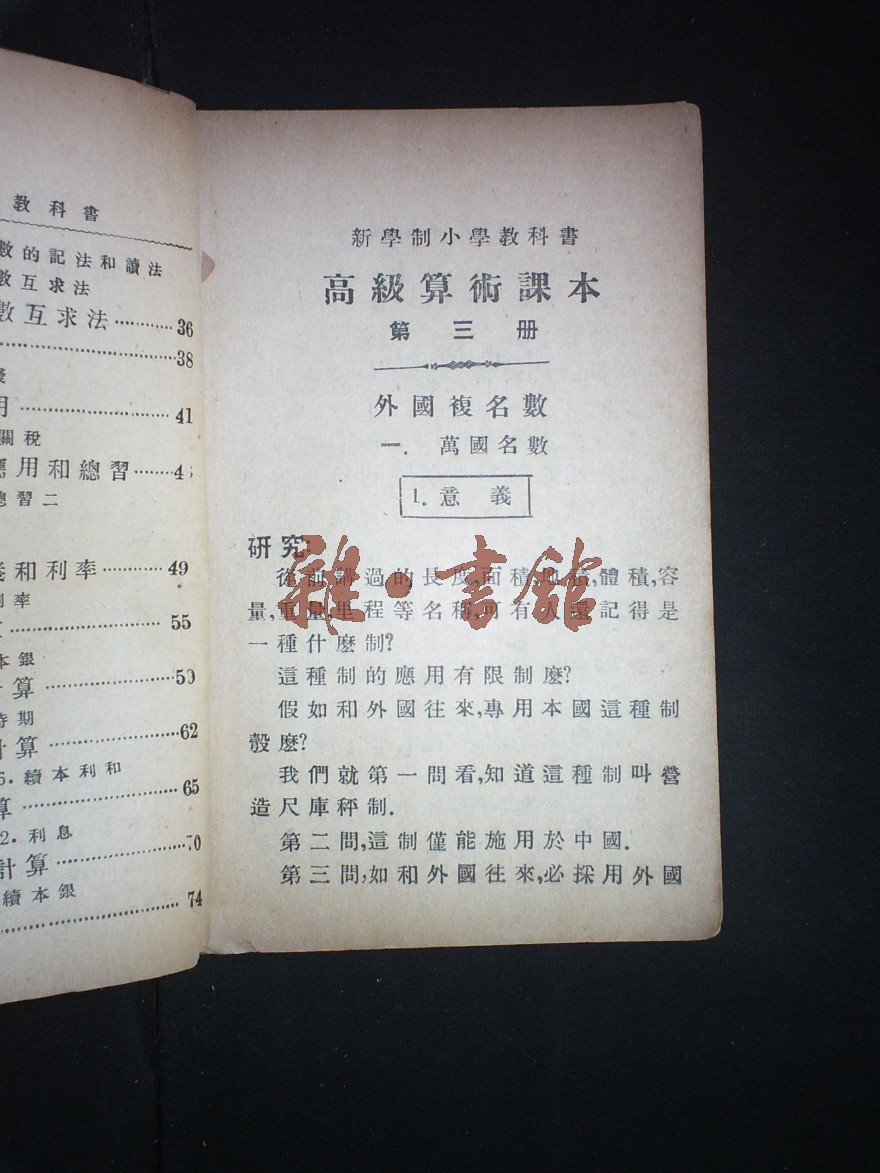 教科書
數的記法和讀法
數互求法
數互求法⋯⋯⋯⋯36
⋯⋯⋯⋯38
⋯⋯⋯⋯41
關稅
應用和總習⋯⋯⋯4
總習二
和利率⋯⋯⋯⋯49
利率
55
本銀
計算⋯⋯⋯⋯59
時期
計算⋯⋯⋯⋯62
6. 續本利和
算⋯⋯⋯⋯65
2. 利息
計算⋯⋯⋯⋯70
續本銀
⋯⋯⋯⋯74
新學制小學教科書
高級算術課本
第三册
外國複名數
一. 萬國名數
1. 意義
研究
從前講過的長度,面積,地積,體積,容
量,重量,里程等名稱,可有人還記得是
一種什麼制?
這種制的應用有限制麼?
假如和外國往來,專用本國這種制
彀麼?
我們就第一問看,知道這種制叫營
造尺庫秤制.
第二問,這制僅能施用於中國.
第三問,如和外國往來,必採用外國
雜·書館